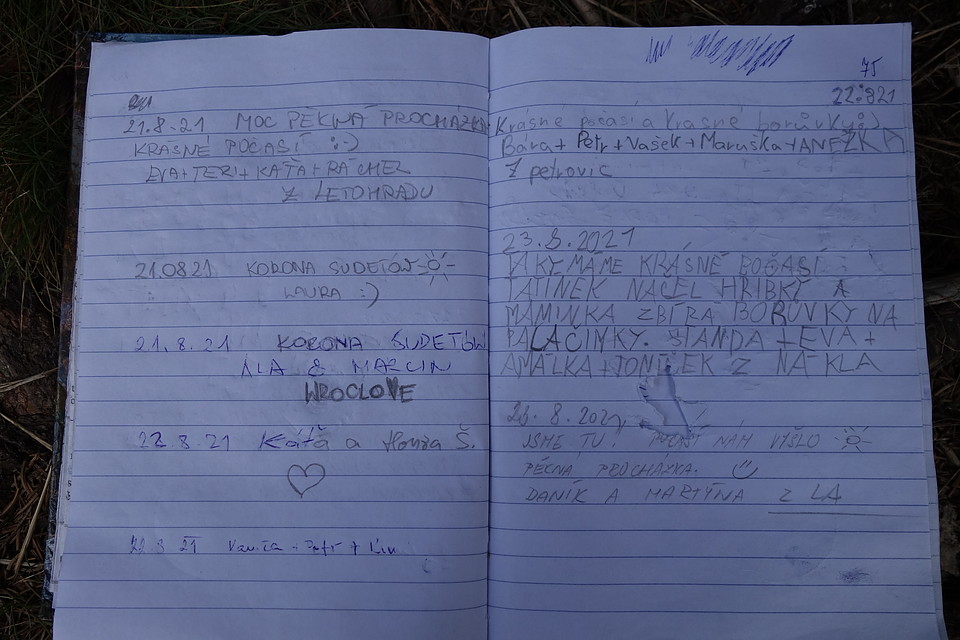 21.8.21 MOC PĚKNÁ PROCHÁZKA
KRÁSNÉ POČASÍ :-)
EVA+TERI+KÁŤA+RÁCHEL
Z LETOHRADU
21.08.21 KORONA SUDETÓW
LAURA :)
21.8.21 KORONA SUDETÓW
ALA & MARCIN
WROCLOVE
22.8.21 Káťa a Honza Š.
75
22.8.21
Krásné počasí a krásné borůvky :)
Bára + Petr + Vašek + Maruška + ANEŽKA
Z petrovic
23.8.2021
MÁME KRÁSNÉ POČASÍ
TATINEK NAŠEL HŘIBKY A
MAMINKA ZBÍRÁ BORŮVKY NA
PALAČINKY. STANDA + EVA +
AMÁLKA + TONÍČEK Z NÁKLA
23.8.2021
JSME TU. POČASÍ NÁM VYŠLO
PĚKNÁ PROCHÁZKA.
DANÍK A MARTÝNA Z LA